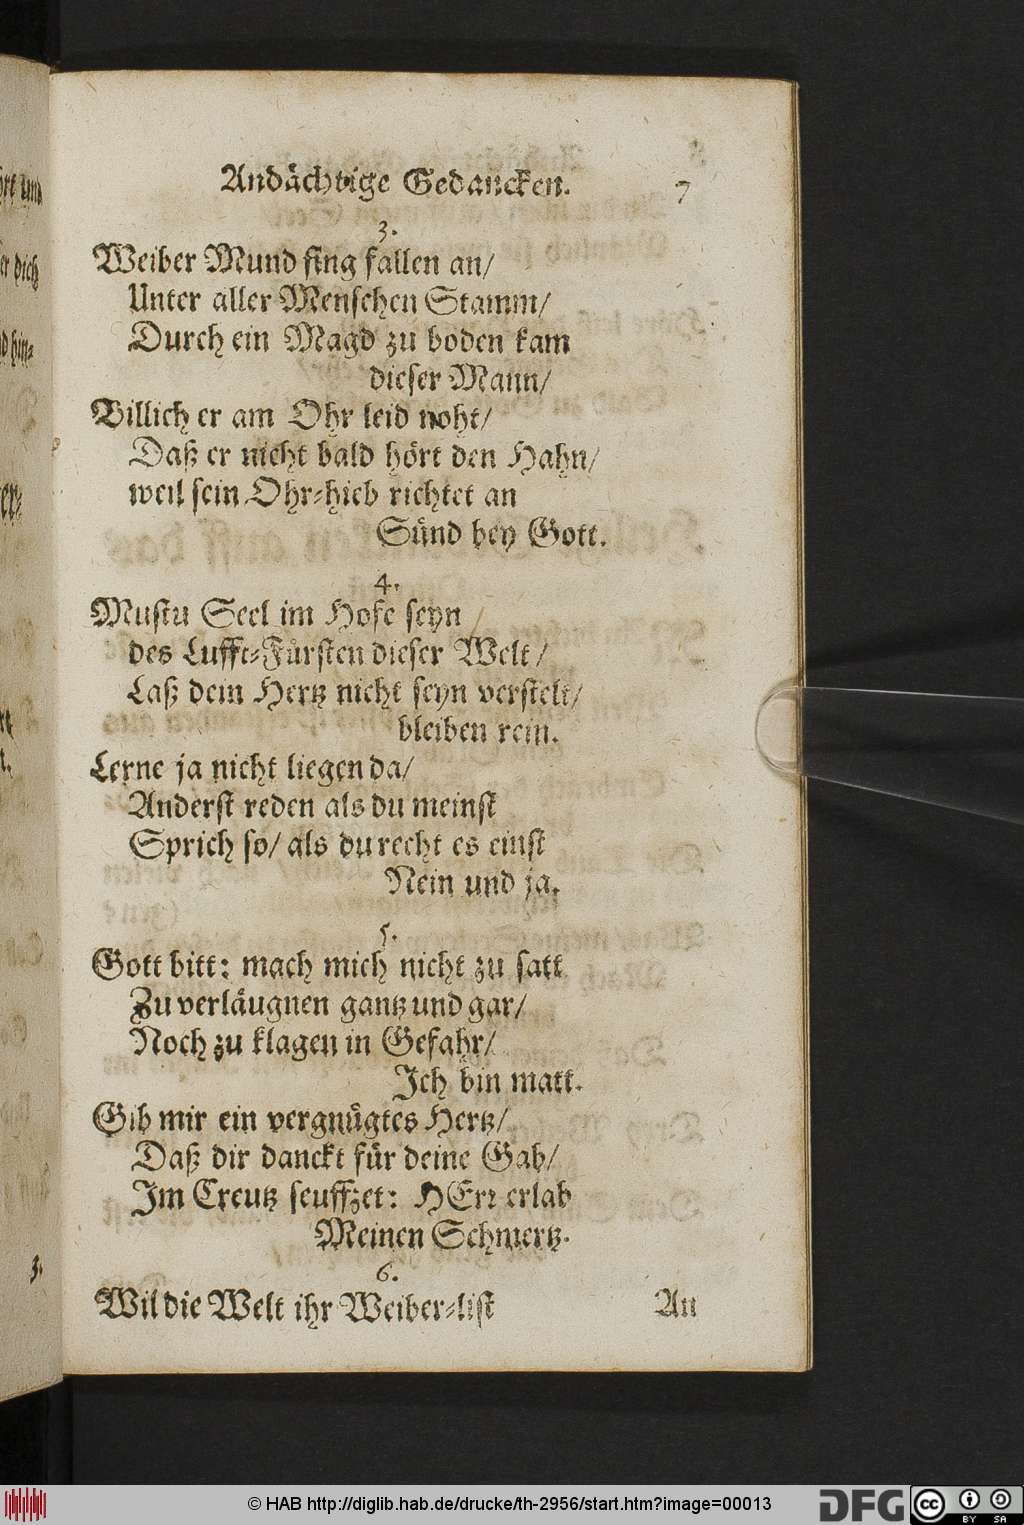 Andächtige Gedancken. 7
3.
Weiber Mund fing fallen an/
Unter aller Menschen Stamm/
Durch ein Magd zu boden kam
dieser Mann/
Billich er am Ohr leid noht/
Daß er nicht bald hört den Hahn/
weil sein Ohr-hieb richtet an
Sünd bey Gott.
4.
Mustu Seel im Hofe seyn
des Lufft-Fürsten dieser Welt/
Laß dein Hertz nicht seyn verstelt/
bleiben rein.
Lerne ja nicht liegen da/
Anderst reden als du meinst
Sprich so/ als du recht es einst
Nein und ja.
5.
Gott bitt: mach mich nicht zu satt
Zu verläugnen gantz und gar/
Noch zu klagen in Gefahr/
Ich bin matt.
Gib mir ein vergnügtes Hertz/
Daß dir danckt für deine Gab/
Im Creutz seuffzet: HErr erlab
Meinen Schmertz.
6.
Wil die Welt ihr Weiber-list
An
© HAB http://diglib.hab.de/drucke/th-2956/start.htm?image=00013
DFG
CC BY SA